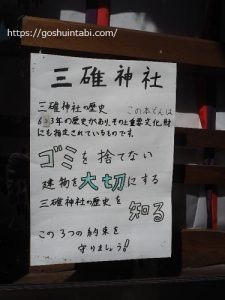 https://goshuintabi.com
三碓神社
三碓神社の歴史
この本でんは
633年の歴史があり、その上重要文化財
にも指定されているものです。
ゴミを捨てない
建物を大切にする
三碓神社の歴史を知る
この3つの約束を
守りましょう!